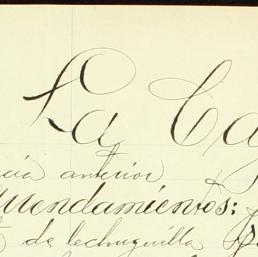 La Ca
cia anterior
rrendamientos:
de lechuguilla